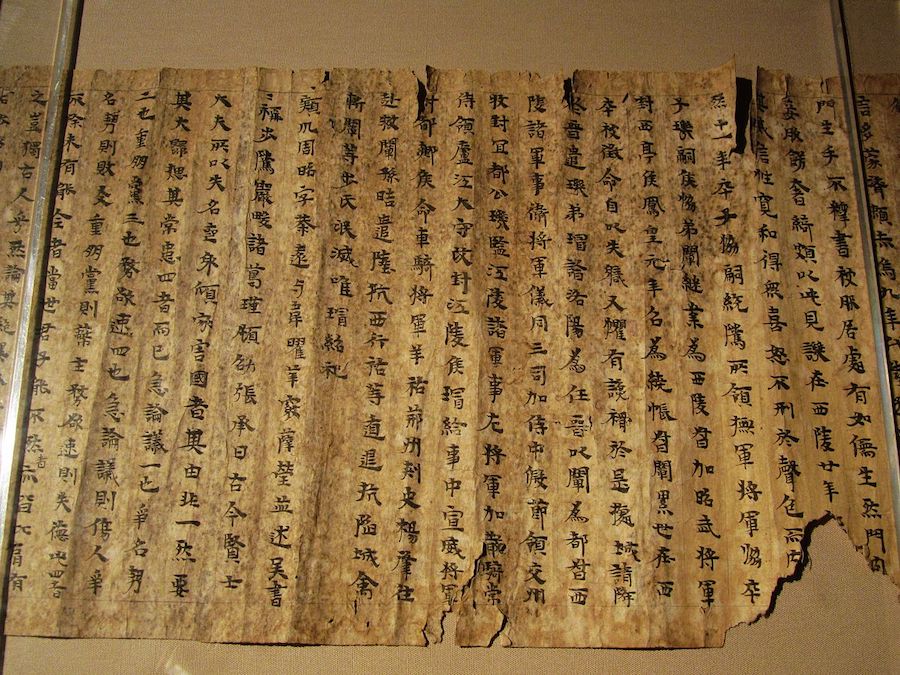 言多蒙濟賴赤烏九年
門生手不釋書被服居處有如儒生然門內
妾服飾奢綺頗以此見譏在西陵廿年
其威信性寬和得衆喜怒不形於聲色而内
然十一年卒子協嗣統騭所領撫軍將軍協卒
子璣嗣侯協弟闡繼業為西陵督加昭武將軍
封西亭侯鳳皇元年召為繞帳督闡累世在西
卒被徵命自以失職又懼有讒禍於是據城詣降
晉遣璣弟璿詣洛陽為任晉以闡為都督西
陵諸軍事衛將軍儀同三司加侍中假節領交州
牧封宜都公璣監江陵諸軍事左將軍加散騎常
侍領廬江太守改封江陵侯璿給事中宣威將軍
封都鄉侯命車騎將軍羊祜荊州刺史楊肇往
赴救闡孫皓遣陸抗西行祜等遁退抗陷城禽
斬闡等步氏泯滅唯璿紹祀
潁川周昭字恭遠與韋曜華覈薛瑩並述吳書
稱步騭嚴畯諸葛瑾顧劭張承曰古今賢士
大夫所以失名喪身傾家害國者其由非一然要
其大歸揔其常患四者而已急論議一也爭名勢
二也重朋黨三也務欲速四也急論議則傷人爭
名勢則敗友重朋黨則蔽主務欲速則失德此四者
不除未有能全者當世君子能不然者亦皆比有有
之豈獨古人乎然論其